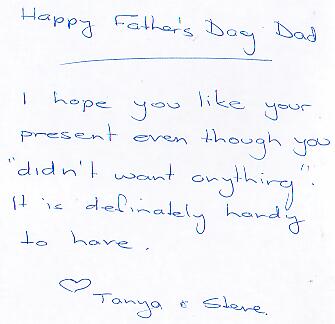 Happy Father's Day Dad
I hope you like your
present even though you
"didn't want anything".
It is definately handy
to have.
♡ Tanya & Steve.